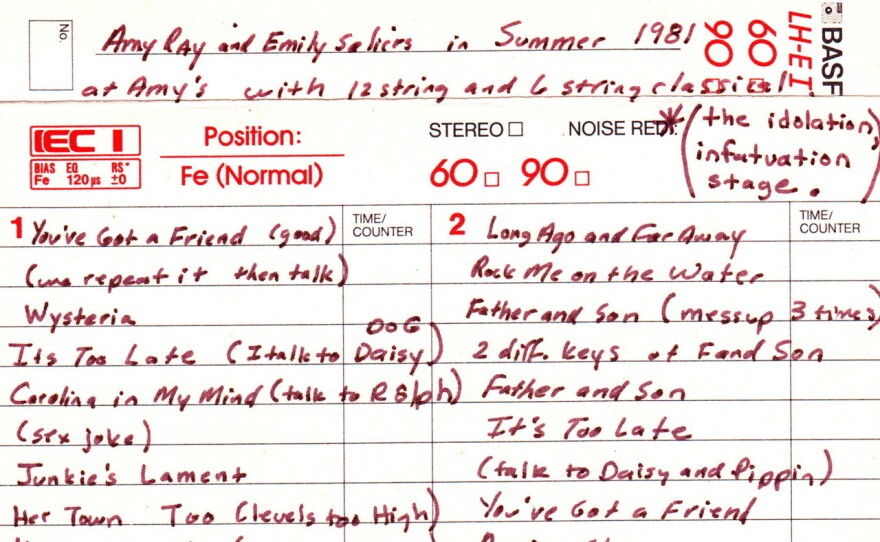 No.
Amy Ray and Emily Saliers in Summer 1981
at Amy's with 12 string and 6 string classical.
60
90
LH-E I
BASF
IEC I
BIAS EQ RS*
Fe 120µs ±0
Position:
Fe (Normal)
STEREO NOISE RED.:
60 90
* (the idolation,
infatuation
stage.
1 You've Got a Friend (good)
TIME/
COUNTER
(we repeat it then talk)
Wysteria
DOG
Its Too Late (I talk to Daisy)
Carolina in My Mind (talk to Ralph)
(sex joke)
Junkie's Lament
Her Town Too (levels too High)
2 Long Ago and Far Away
TIME/
COUNTER
Rock Me on the Water
Father and Son (messup 3 times)
2 diff. keys of F and Son
Father and Son
It's Too Late
(talk to Daisy and Pippin)
You've Got a Friend